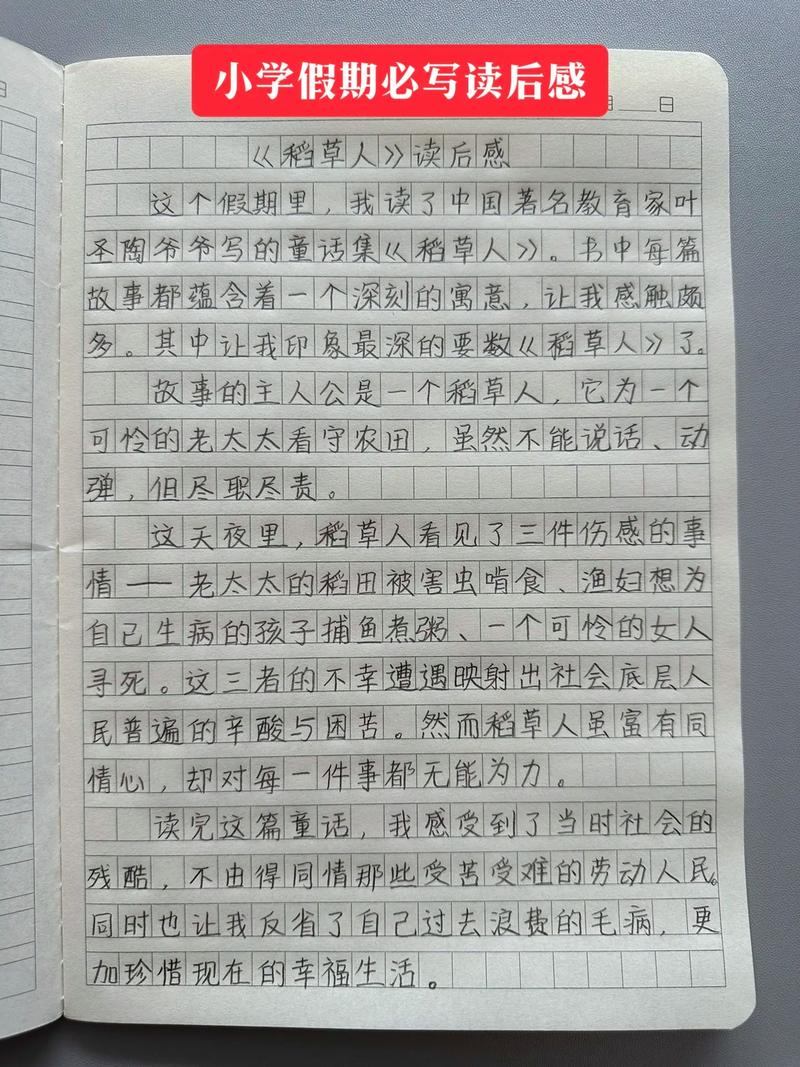 小学假期必写读后感
月 日
《稻草人》读后感
这个假期里，我读了中国著名教育家叶
圣陶爷爷写的童话集《稻草人》。书中每篇
故事都蕴含着一个深刻的寓意，让我感触颇
多。其中让我印象最深的要数《稻草人》了。
故事的主人公是一个稻草人，它为一个
可怜的老太太看守农田，虽然不能说话、动
弹，但尽职尽责。
这天夜里，稻草人看见了三件伤感的事
情——老太太的稻田被害虫啃食、渔妇想为
自己生病的孩子捕鱼煮粥、一个可怜的女人
寻死。这三者的不幸遭遇映射出社会底层人
民普遍的辛酸与困苦。然而稻草人虽富有同
情心，却对每一件事都无能为力。
读完这篇童话，我感受到了当时社会的
残酷，不由得同情那些受苦受难的劳动人民。
同时也让我反省了自己过去浪费的毛病，更
加珍惜现在的幸福生活。